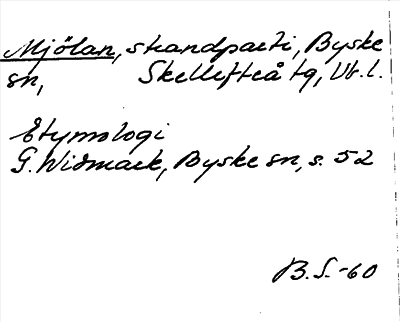 Mjölan, strandparti, Byske
sn, Skellefteå tg, Vb. l.
Etymologi
G. Widmark, Byske sn, s. 52
B. S. -60